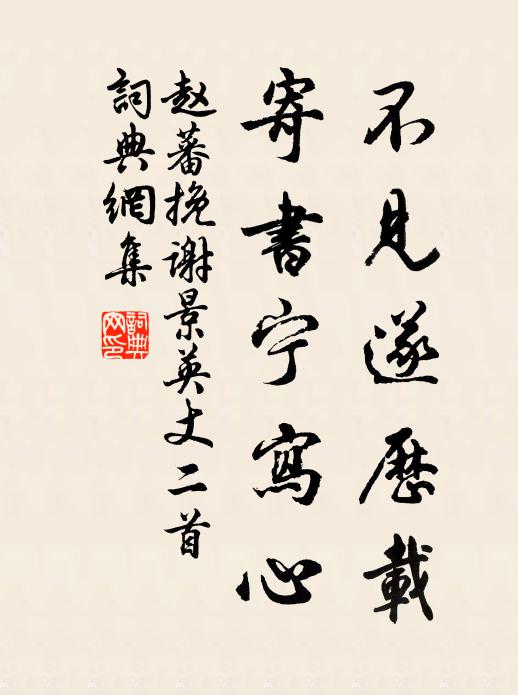 不见遂歷載
寄書宁寫心
赵蕃挽谢景英丈二首
詞典網集
詞典网印